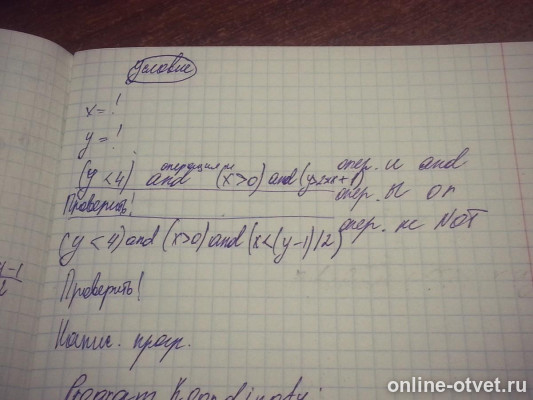 Условие
x = !
y = !
операция и
(y < 4) and (x > 0) and (y > 2x + 1) опер. и and
Проверить! опер. или or
(y < 4) and (x > 0) and (x < (y-1)/2) опер. не NOT
y-1
2
Проверить!
Напис. прогр.
Program Koordinaty;
online-otvet.ru